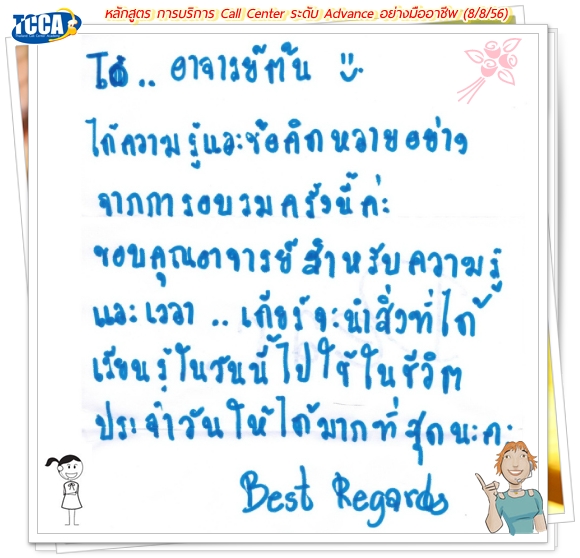 TCCA
หลักสูตร การบริการ Call Center ระดับ Advance อย่างมืออาชีพ (8/8/56)
To .. อาจารย์ต้น
ได้ความรู้และข้อคิดหลายอย่าง
จากการอบรมครั้งนี้ค่ะ
ขอบคุณอาจารย์สำหรับความรู้
และเวลา .. เกียร์จะนำสิ่งที่ได้
เรียนรู้ในวันนี้ไปใช้ในชีวิต
ประจำวันให้ได้มากที่สุดนะคะ
Best Regards